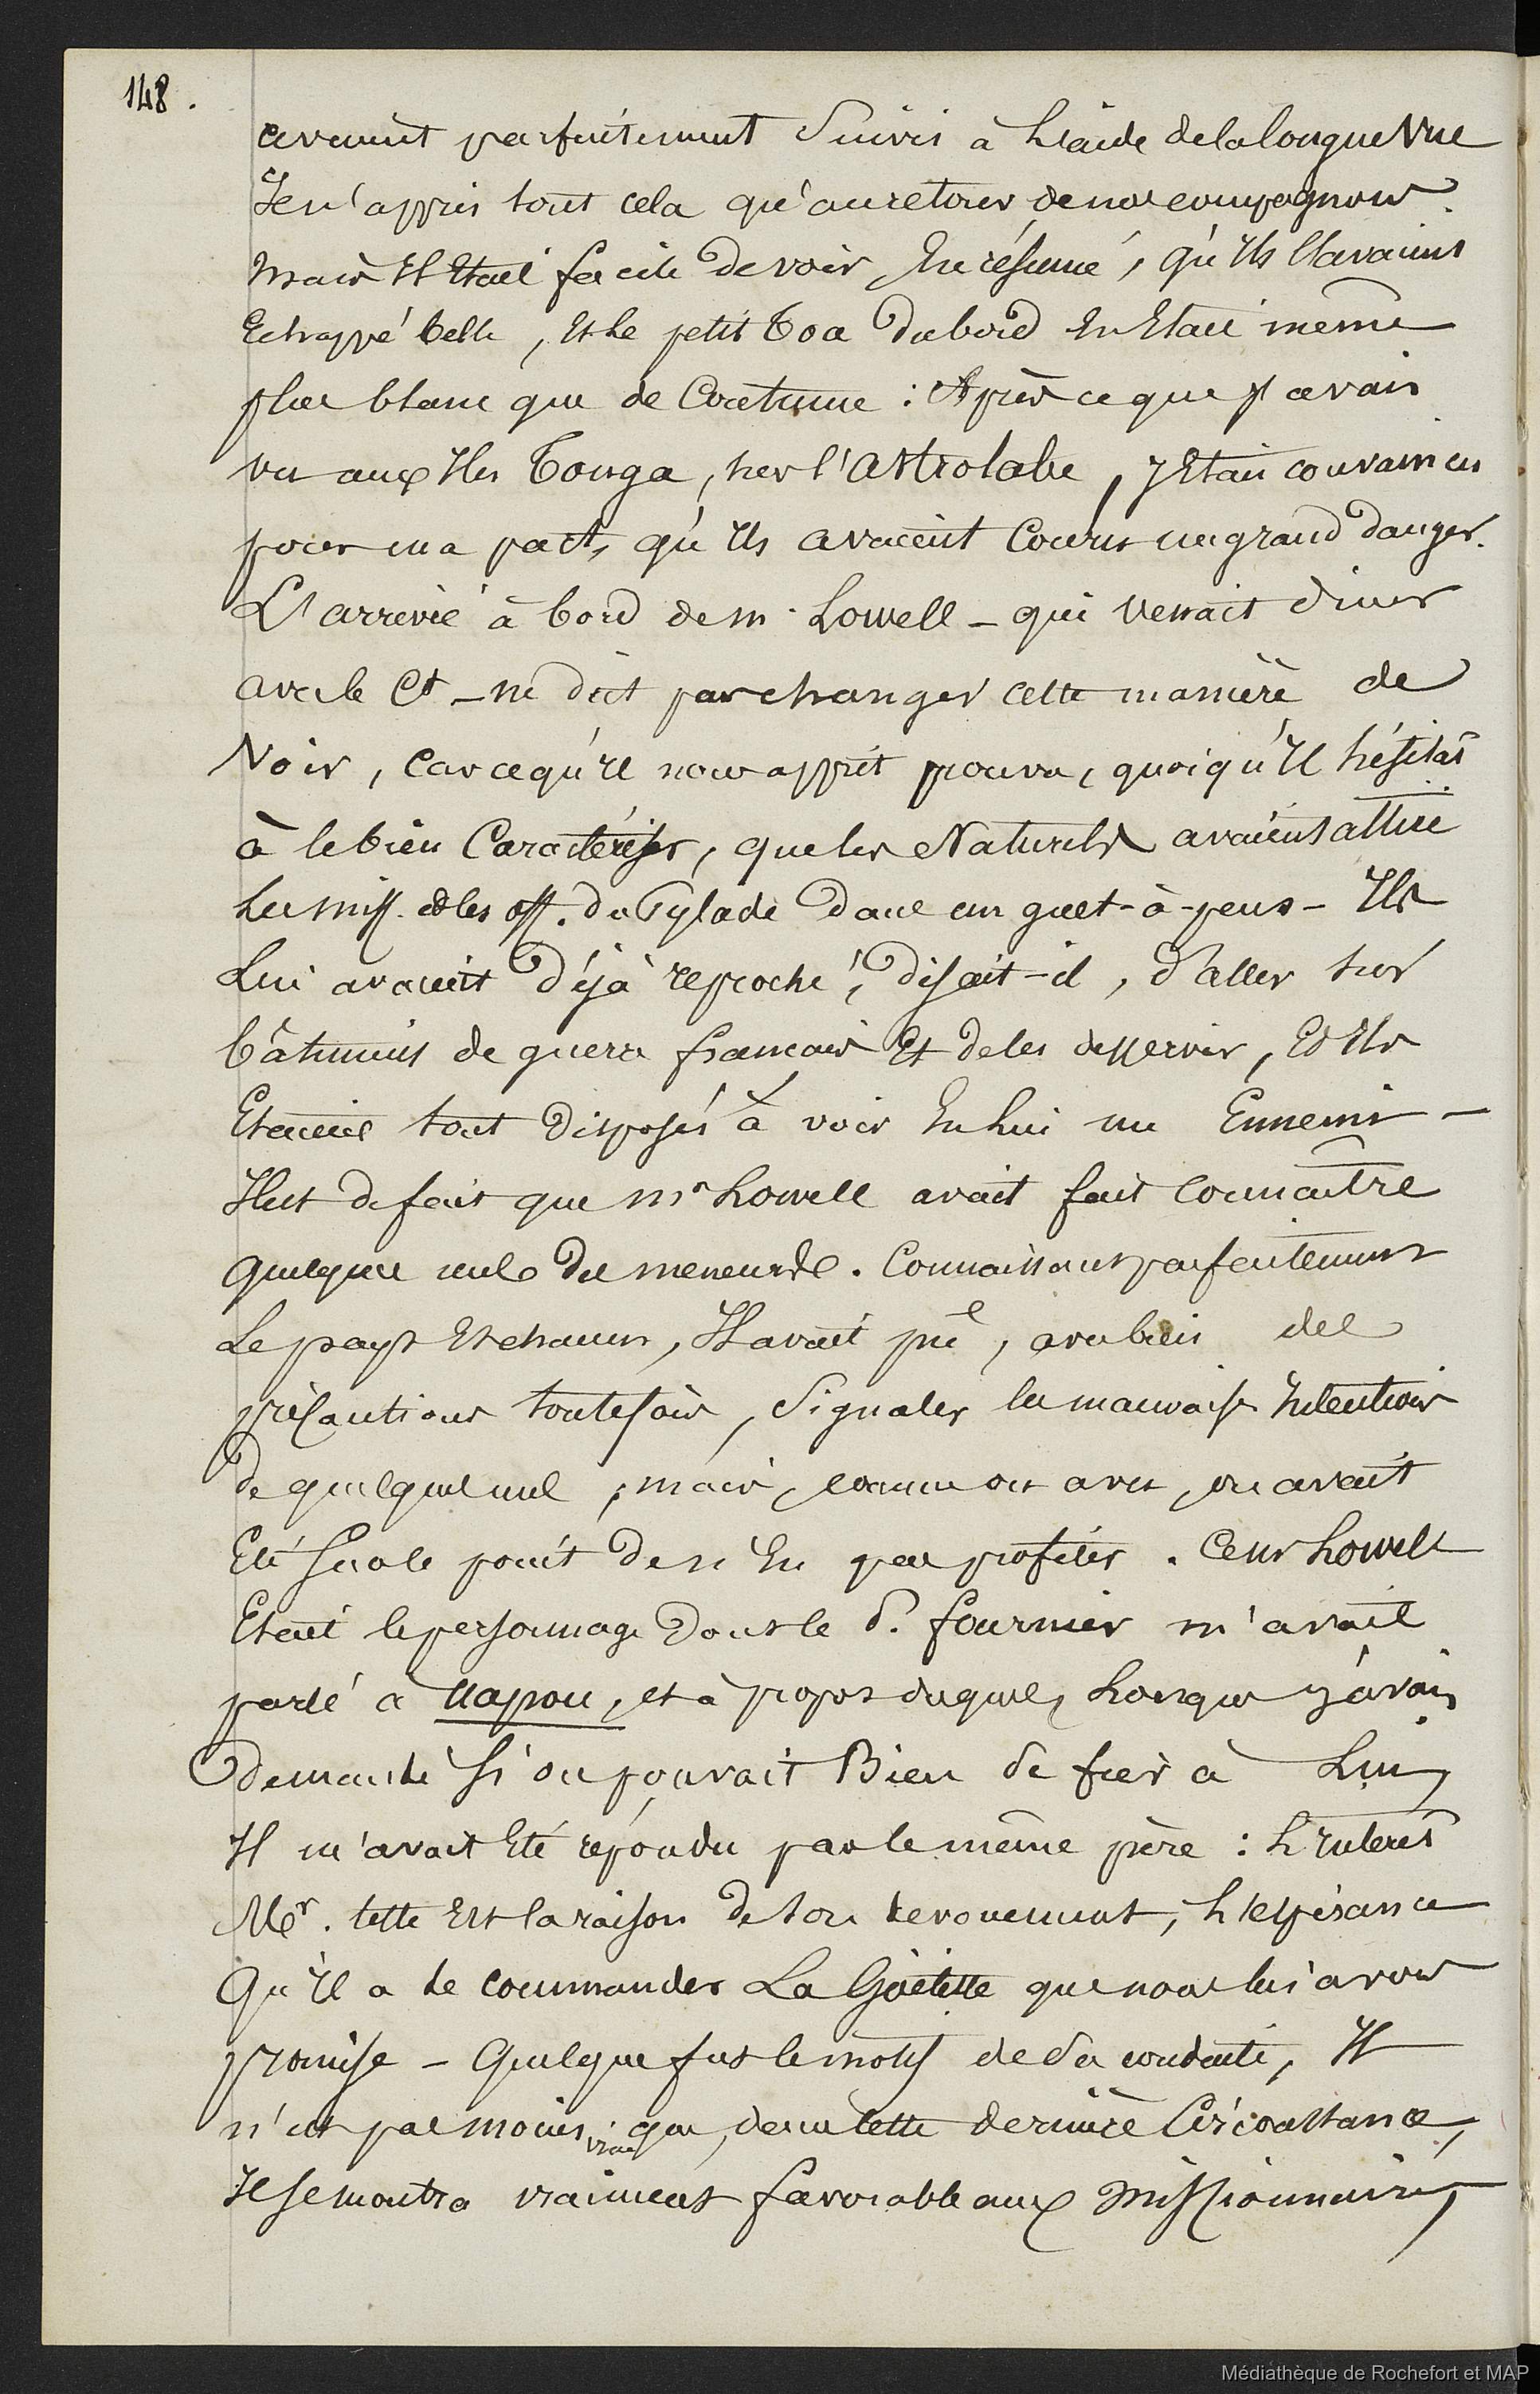 148.
avaient parfaitement suivis à L'aide de la longue vue
Je n'appris tout cela qu'au retour de nos compagnons.
mais Il Etait facile de voir, En résumé, qu'Ils L'avaient
Echappé belle, Et Le petit Toa dabord En Etait même
plus blanc que de Coutume : Après ce que j'avais
vu aux Iles Tonga, sur l'Astrolabe, j'Etais convaincu
pour ma part, qu'Ils avaient Couru un grand danger.
L'arrivée à bord de m. Lowell _ qui venait diner
avec le Ct _ ne dut pas changer cette manière de
Voir, Car ce qu'il nous apprit prouva, quoiqu'Il hésitat
à le bien Caractériser, que les Naturels avaient attiré
Les miss. et les off. du Pylade dans un guet-à-pens - Ils
Lui avaient Déjà reproché, disait-il, d'aller sur
bâtiments de guerre français Et de les desservir, Et Ils
Etaient tout Disposés à voir En Lui un Ennemi _
Il est de fait que mr Lowell avait fait Connaître
quelques uns des meneurs. Connaissant parfaitement
Le pays Et chacun, Il avait pu, avec bien des
précautions toutefois, Signaler les mauvaises Intentions
de quelques uns, mais, comme on avu, on avait
Eté sur le point de n'En pas profiter. Ce mr Lowell
Etait le personnage Dont le P. fournier m'avait
parlé à Uapou, et à propos duquel, Lorsque j'avais
Demandé si on pouvait Bien se fier à Lui,
Il m'avait Eté répondu par le même père : L'Interêt
Mr. telle Est la raison de son devouement, L'espérance
Qu'Il a de commander La Goëlette que nous lui avons
promise - Quelque fut le motif de sa conduite, Il
n'est pas moins vrai que, dans cette dernière Circonstance,
Il se montra vraiment favorable aux missionnaires,
Médiathèque de Rochefort et MAP